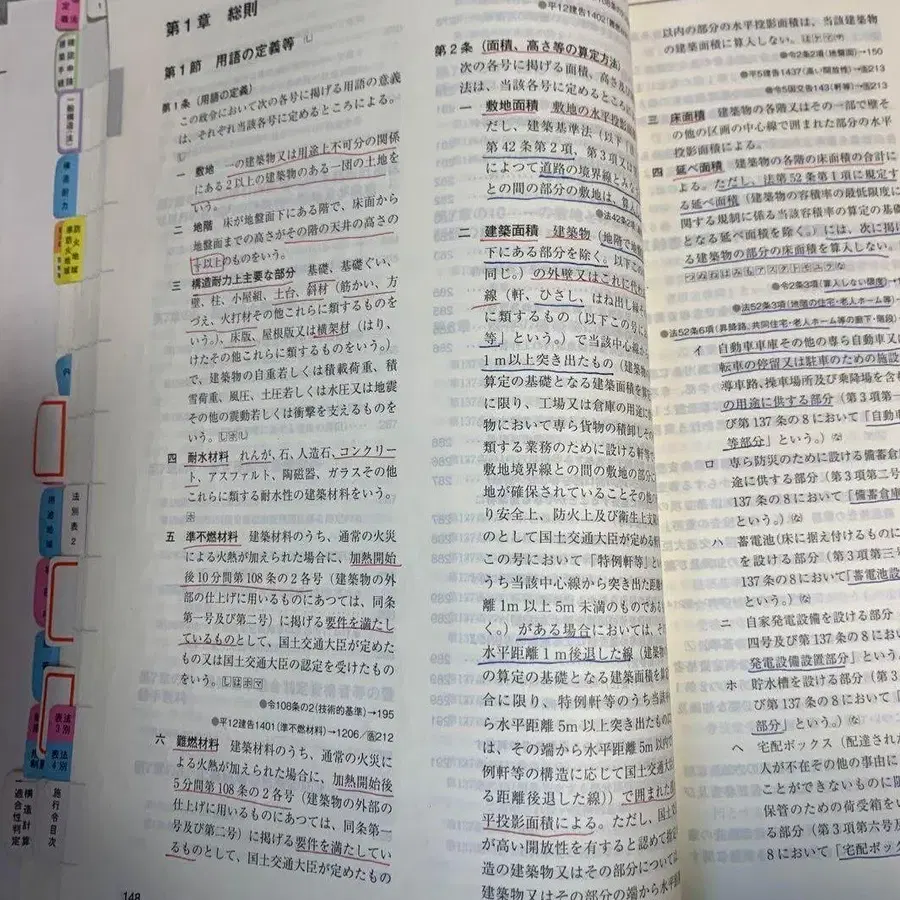 第1章 総則
第1節 用語の定義等
第1条（用語の定義）
この政令において次の各号に掲げる用語の意義
は、それぞれ当該各号に定めるところによる。
一 敷地 一の建築物又は用途上不可分の関係
にある2以上の建築物のある一団の土地を
いう。
二 地階 床が地盤面下にある階で、床面から
地盤面までの高さがその階の天井の高さの
以上のものをいう。
三 構造耐力上主要な部分 基礎、基礎ぐい、
壁、柱、小屋組、土台、斜材（筋かい、方
づえ、火打材その他これらに類するものを
いう。）、床版、屋根版又は横架材（はり、
けたその他これらに類するものをいう。）
で、建築物の自重若しくは積載荷重、積
雪荷重、風圧、土圧若しくは水圧又は地震
その他の震動若しくは衝撃を支えるものを
いう。
四 耐水材料 れんが、石、人造石、コンクリー
ト、アスファルト、陶磁器、ガラスその他
これらに類する耐水性の建築材料をいう。
五 準不燃材料 建築材料のうち、通常の火災
による火熱が加えられた場合に、加熱開始
後10分間第108条の2各号（建築物の外
部の仕上げに用いるものにあつては、同条
第一号及び第二号）に掲げる要件を満たし
ているものとして、国土交通大臣が定めた
もの又は国土交通大臣の認定を受けたもの
をいう。
●令108条の2(技術的基準)→195
●平12建告1401(準不燃材料)→1206/告212
六 難燃材料 建築材料のうち、通常の火災に
よる火熱が加えられた場合に、加熱開始後
5分間第108条の2各号（建築物の外部の
仕上げに用いるものにあつては、同条第一
号及び第二号）に掲げる要件を満たしてい
るものとして、国土交通大臣が定めたもの
148
●平12建告1402
第2条（面積、高さ等の算定方法）
次の各号に掲げる面積、高さ及び
法は、当該各号に定めるところ
一 敷地面積 敷地の水平投影面
だし、建築基準法（以下「
第42条第2項、第3項又は
によつて道路の境界線とみな
との間の部分の敷地は、算入
●法42条2
二 建築面積 建築物（地階で地
下にある部分を除く。以下こ
同じ。）の外壁又はこれに
線（軒、ひさし、はね出し縁
に類するもの（以下この号に
等」という。）で当該中心線
1m以上突き出たもの（建築
算定の基礎となる建築面積を
に限り、工場又は倉庫の用途に
物において専ら貨物の積卸しそ
類する業務のために設ける軒等
敷地境界線との間の敷地の部分
地が確保されていることその他
り安全上、防火上及び衛生上支
のとして国土交通大臣が定める
この号において「特例軒等」と
うち当該中心線から突き出た距離
離1m以上5m未満のものであ
く。）がある場合においては、そ
水平距離1m後退した線（建築
の算定の基礎となる建築面積を
合に限り、特例軒等のうち当該
ら水平距離5m以上突き出たもの
は、その端から水平距離5m以内
例軒等の構造に応じて国土交通大
る距離後退した線））で囲まれた
平投影面積による。ただし、国土
が高い開放性を有すると認めて指定
造の建築物又はその部分について
建築物又はその部分の端から水平
以内の部分の水平投影面積は、当該建築物
の建築面積に算入しない。
●令2条2項(地盤面)→150
●平5建告1437(高い開放性)→告213
●令5国交告143(軒等)→告213
三 床面積 建築物の各階又はその一部で壁そ
の他の区画の中心線で囲まれた部分の水平
投影面積による。
四 延べ面積 建築物の各階の床面積の合計に
よる。ただし、法第52条第1項に規定す
る延べ面積（建築物の容積率の最低限度に
関する規制に係る当該容積率の算定の基礎
となる延べ面積を除く。）には、次に掲げ
る建築物の部分の床面積を算入しない。
●令2条3項(算入しない限度)→
●法52条3項(地階の住宅・老人ホーム等)→
●法52条6項(昇降路、共同住宅・老人ホーム等の廊下・階段)→
イ 自動車車庫その他の専ら自動車又は
転車の停留又は駐車のための施設
導車路、操車場所及び乗降場を含
の用途に供する部分（第3項第一
び第137条の8において「自動車
等部分」という。）
ロ 専ら防災のために設ける備蓄倉
途に供する部分（第3項第二号
137条の8において「備蓄倉庫
という。）
ハ 蓄電池（床に据え付けるものに
を設ける部分（第3項第三号
137条の8において「蓄電池設
という。）
ニ 自家発電設備を設ける部分
四号及び第137条の8におい
発電設備設置部分」という。
ホ 貯水槽を設ける部分（第3
第137条の8において「
部分」という。）
ヘ 宅配ボックス（配達され
人が不在その他の事由に
ことができないものに限
保管のための荷受箱をい
る部分（第3項第六号及
8において「宅配ボック
一般構造（法）
構造耐力
防火地域
準防火地域
用途地域
法別表2
法別表3
法別表4
構造計算
適合性判定
施行令目次